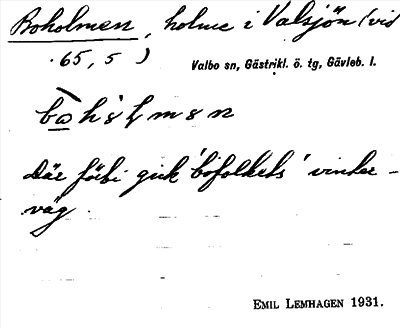 Boholmen, holme i Valsjön (vid
65, 5)
Valbo sn, Gästrikl. ö. tg, Gävleb. l.
Där förbi gick 'bofolkets' vinter-
väg.
EMIL LEMHAGEN 1931.